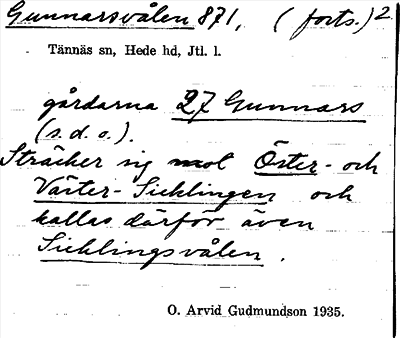 Gunnarsvålen 871, (forts.) 2
Tännäs sn, Hede hd, Jtl. l.
gårdarna 27 Gunnars
(s.d.o.).
Sträcker sig mot Öster- och
Väster-Sicklingen och
kallas därför även
Sicklingsvålen.
O. Arvid Gudmundson 1935.